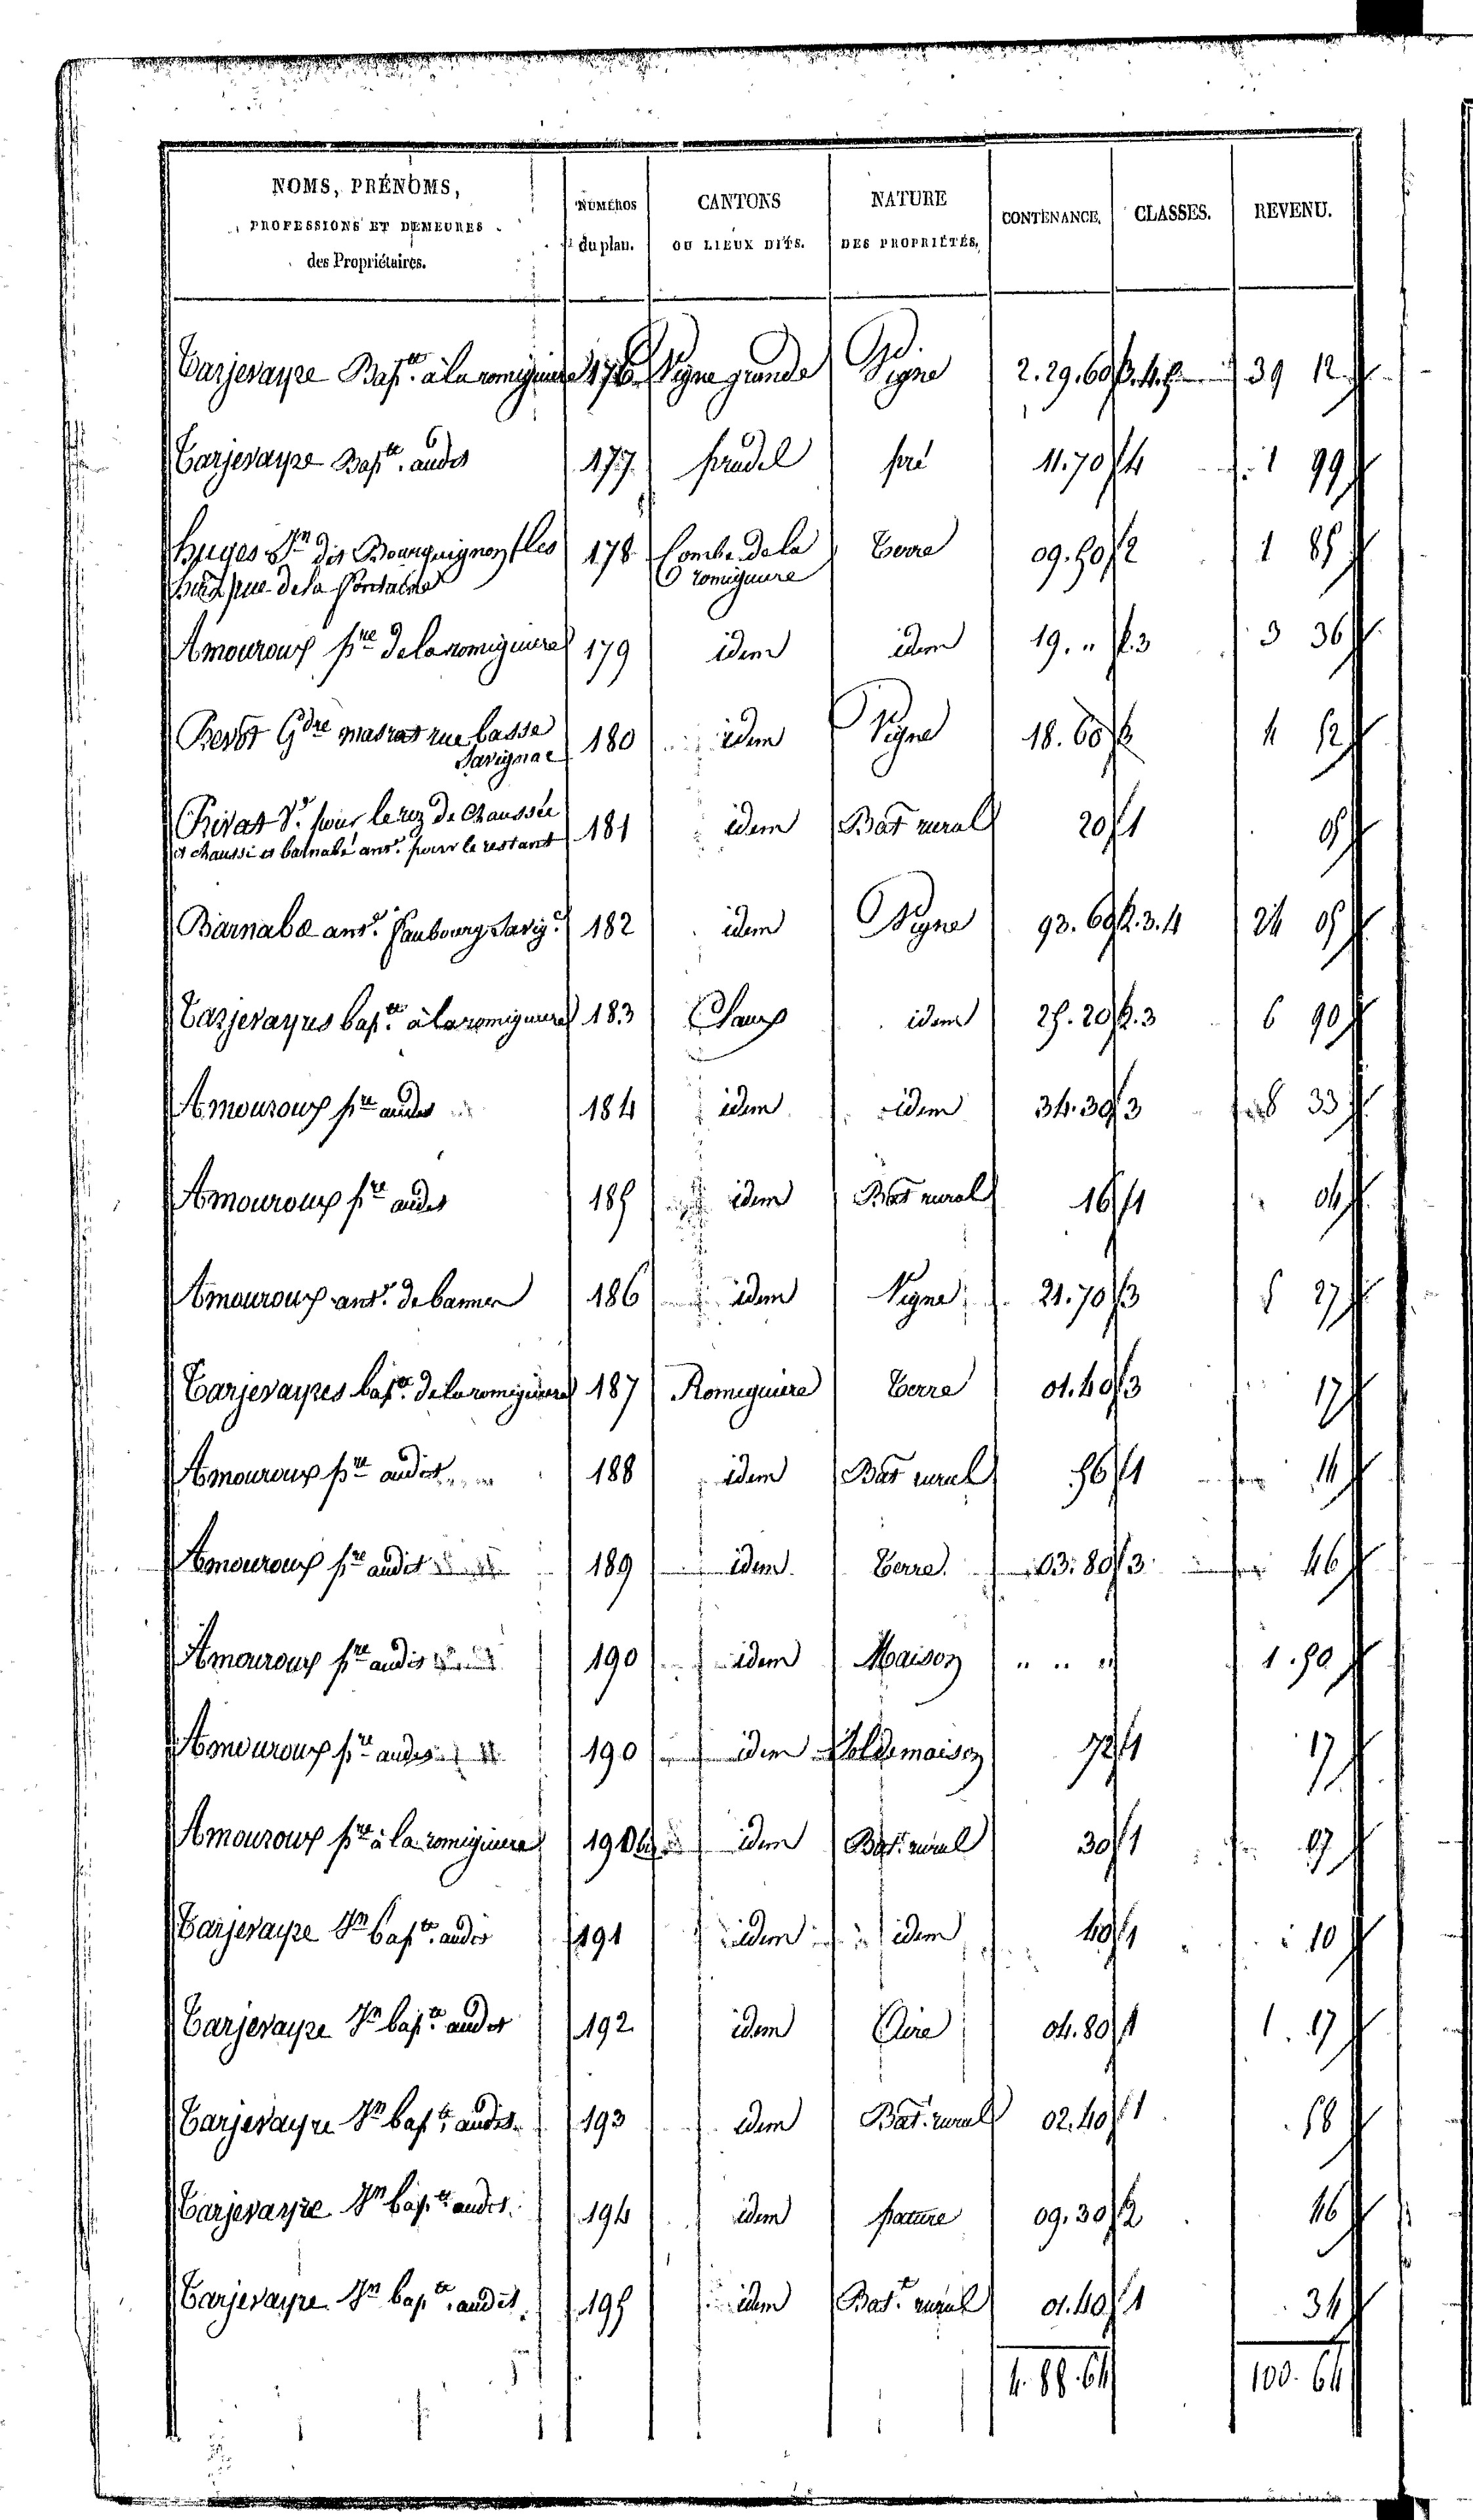 NOMS, PRÉNOMS,
PROFESSIONS ET DEMEURES
des Propriétaires.
NUMÉROS du plan.
CANTONS OU LIEUX DITS.
NATURE DES PROPRIÉTÉS.
CONTENANCE.
CLASSES.
REVENU.
Carjevayre Bapte. à la romiguiere 176 Vigne grande Vigne 2.29.60 3.4.5 39 12
Carjevayre Bapte. audit 177 pradel pré 11.70 4 1 99
Huges Jn dit Bourguignon
rue de la Fontaine 178 Combe de la romiguiere Terre 09.50 2 1 85
Amouroux pre de la romiguiere 179 idem idem 19. " 2.3 3 36
rue basse
Savignac 180 idem Vigne 18.60 3 4 52
Privat pour le rez de chaussée
et chaussi et barnabé ant. pour le restant 181 idem Bat rural 20 1 05
Barnabé ant. Faubourg Savig. 182 idem Vigne 93.60 2.3.4 24 05
Carjevayres bapte. à la romiguiere 183 Claux idem 25.20 2.3 6 90
Amouroux pre audit 184 idem idem 34.30 3 8 33
Amouroux pre audit 185 idem Bat rural 16 1 04
Amouroux ant. de banner 186 idem Vigne 21.70 3 5 27
Carjevayres bapte. de la romiguiere 187 Romiguiere Terre 01.40 3 17
Amouroux pre audit 188 idem Bat rural 56 1 14
Amouroux pre audit 189 idem Terre 03.80 3 46
Amouroux pre audit 190 idem Maison " " " 1.50
Amouroux pre audit 190 idem Sol de maison 72 1 17
Amouroux pre à la romiguiere 190 bis idem Bat. rural 30 1 07
Carjevayre Jn bapte. audit 191 idem idem 40 1 10
Carjevayre Jn bapte. audit 192 idem Aire 04.80 1 1.17
Carjevayre Jn bapte. audit 193 idem Bat. rural 02.40 1 58
Carjevayre Jn bapte. audit 194 idem pature 09.30 2 46
Carjevayre Jn bapte. audit 195 idem Bat. rural 01.40 1 34
4.88.64 100.64